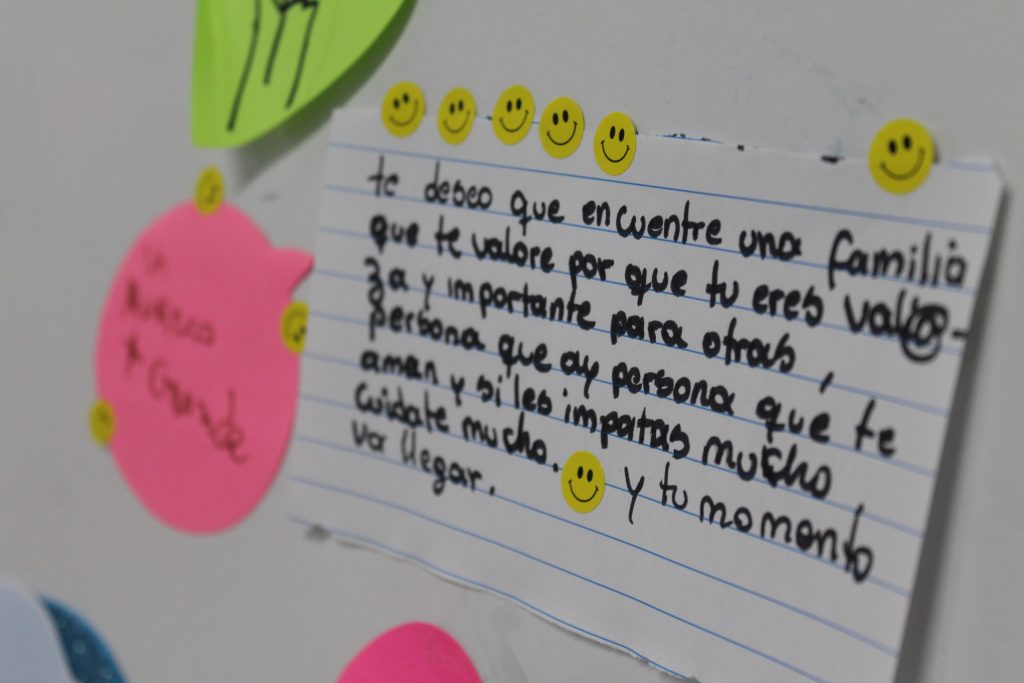 te deseo que encuentre una familia
que te valore por que tu eres valio-
za y importante para otras,
persona que ay persona que te
aman y si les impatas mucho
cuidate mucho. y tu momento
va llegar.
Un
Grande